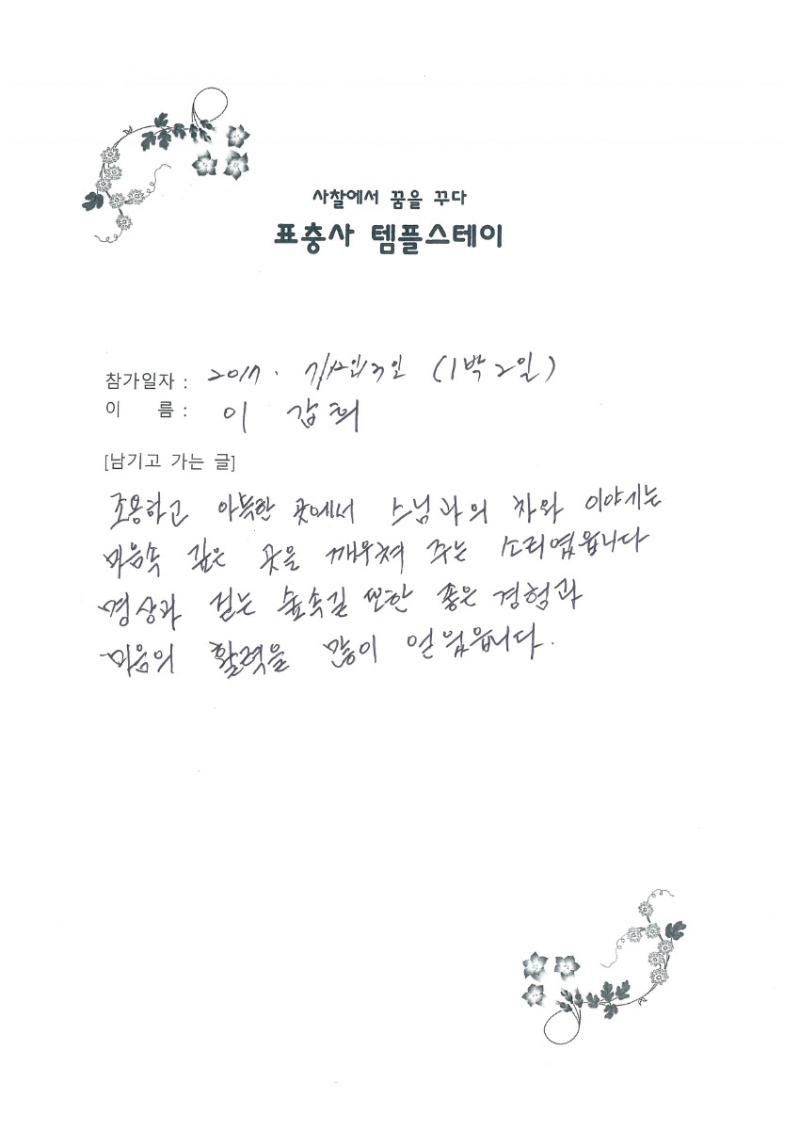 사찰에서 꿈을 꾸다
표충사 템플스테이
참가일자 : 2017. 7/12일13일 (1박2일)
이 름 : 이 갑희
[남기고 가는 글]
조용하고 아늑한 곳에서 스님과의 차와 이야기는
마음속 깊은 곳을 깨우쳐 주는 소리였읍니다
명상과 걷는 숲속길 또한 좋은 경험과
마음의 활력을 많이 얻었읍니다.